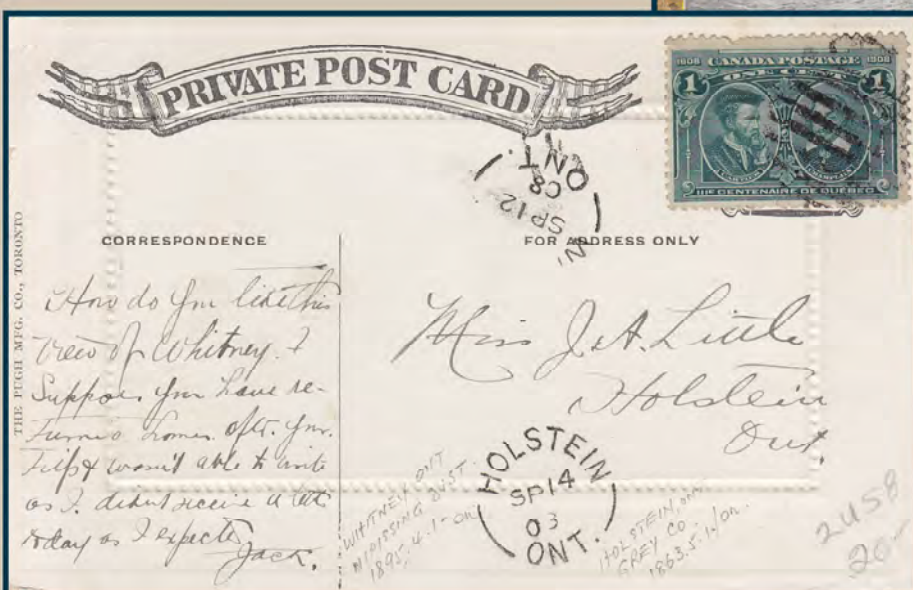 PRIVATE POST CARD
1608 CANADA POSTAGE 1908
1 ONE CENT 1
CARTIER CHAMPLAIN
IIIe CENTENAIRE DE QUÉBEC
ONT.
08
SP 12
THE PUGH MFG. CO., TORONTO
CORRESPONDENCE
FOR ADDRESS ONLY
How do you like this
view of Whitney. I
Suppose you have re-
turned home after your
trip & wasn't able to write
as I didnt receive a
today as I expected
Jack.
Miss J. A. Little
Holstein
Ont.
HOLSTEIN
SP 14
03
ONT.
WHITNEY ONT
NIPISSING DIST.
1895.4.1-on
HOLSTEIN, ONT
GREY CO.
1863.5.1/on.
2458
20-